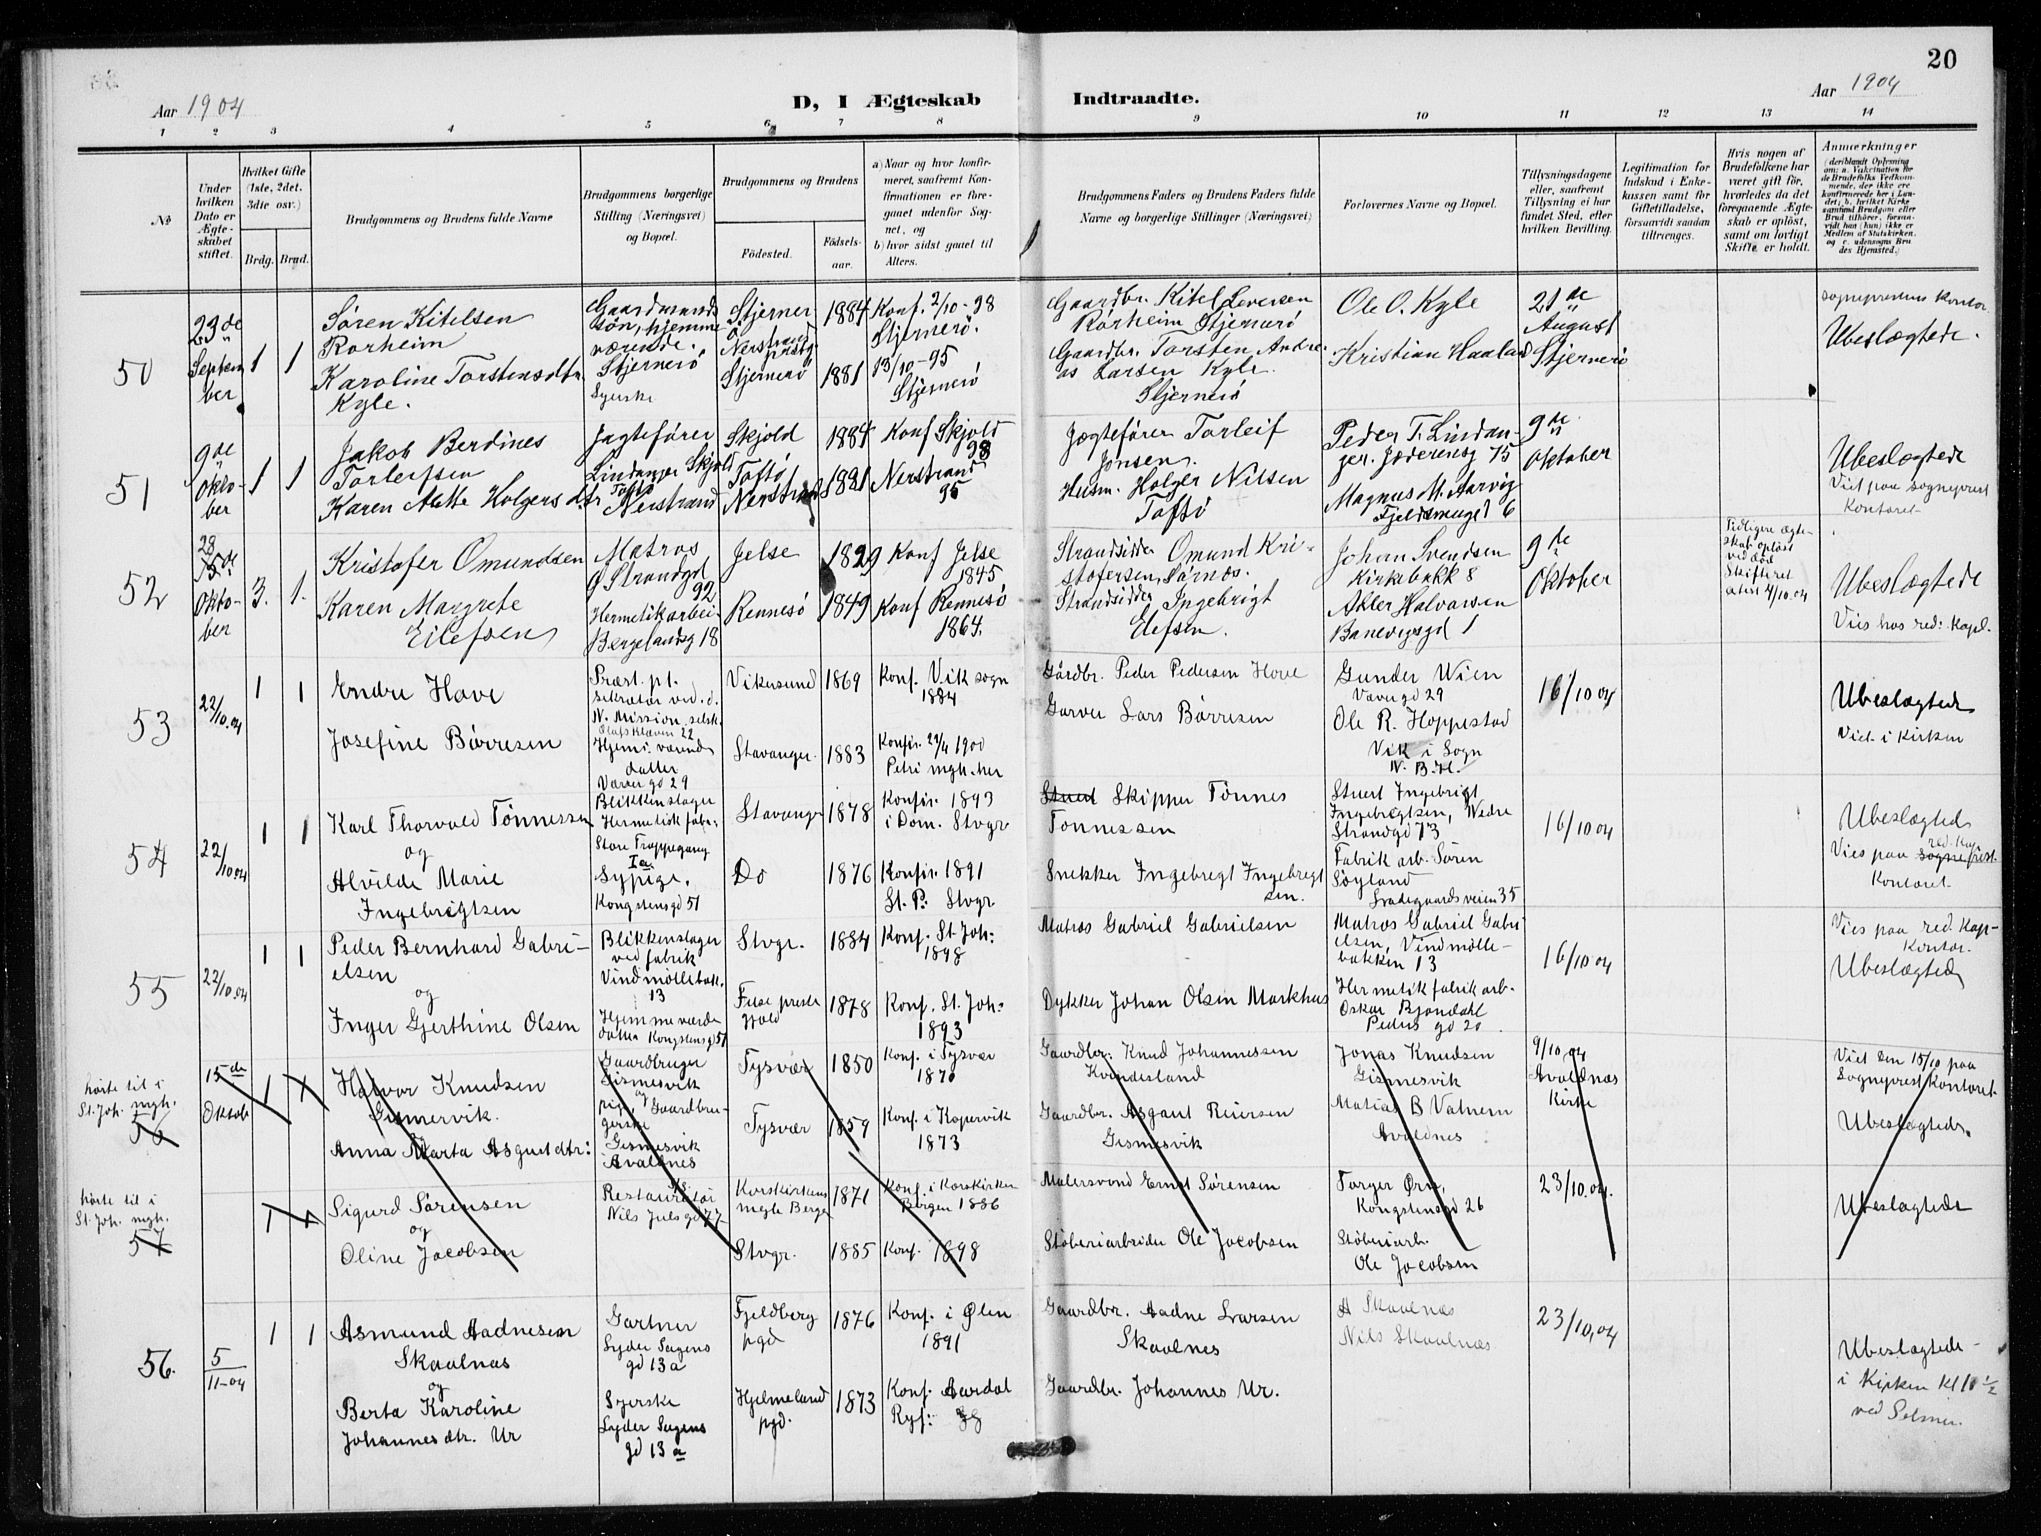 20
Aar 1904
D, I Ægteskab Indtraadte.
Aar 1904
1 2 3 4 5 6 7 8 9 10 11 12 13 14
№
Under hvilken Dato er Ægteskabet stiftet.
Hvilket Gifte (1ste, 2det, 3die osv.)
Brdg. Brud.
Brudgommens og Brudens fulde Navne
Brudgommens borgerlige Stilling (Næringsvei) og Bopæl.
Brudgommens og Brudens
Födested.
Födselsaar.
a) Naar og hvor konfirmeret, saafremt Konfirmationen er foregaaet udenfor Sognet, og
b) hvor sidst gaaet til Alters.
Brudgommens Faders og Brudens Faders fulde Navne og borgerlige Stillinger (Næringsvei)
Forlovernes Navne og Bopæl.
Tillysningsdagene eller, saafremt Tillysning ei har fundet Sted, efter hvilken Bevilling.
Legitimation for Indskud i Enkekassen samt for Giftetilladelse, forsaavidt saadan tiltrænges.
Hvis nogen af Brudefolkene har været gift för, hvorledes da det foregaaende Ægteskab er oplöst, samt om lovligt Skifte er holdt.
Anmerkninger
(deriblandt Oplysning om: a. Vaccination for de Brudefolks Vedkommende, der ikke ere konfirmerede her i Landet; b. hvilket Kirkesamfund Brudgom eller Brud tilhörer, forsaavidt han (hun) ikke er Medlem af Statskirken, og c. udensogns Brudes Hjemsted.)
50
23de
Septem
ber
1 1
Søren Kitelsen
Rorheim
Karoline Torstensdtr
Kyle.
Gaardmands
søn, hjemme
værende.
Stjernerö
Syerske
Stjerner
ö
Nerstrand
prstg
Stjernerö
1884
1881
Konf. 2/10-98
Stjernerö.
13/10-95
Stjernerö
Gaardbr. Kitel Seversen
Rörheim Stjernerö
Gaardbr. Torsten Andre
as Larsen Kyle.
Stjernerö
Ole O. Kyle
Kristian Haaland
21de
August
Stjernerö
sogneprestens kontor.
Ubeslægtede.
51
9de
Okto-
ber
1 1
Jakob Berdines
Torleifsen
Karen Aette Holgersdtr
Jagtefører
Lindanger Skjold
Toftø
Nerstrand
Skjold
Toftö
Nerstrand
1884
1821
Konf Skjold
98
Nerstrand
95
Jægtefører Torleif
Jonsen.
Husm. Holger Nilsen
Toftö
Peder T. Lindan-
ger. Jæderensg 15
Magnus M. Aarvig
Fjeldsmuget 6
9de
Oktober
Ubeslægtede
Viet paa sogneprest
Kontoret
52
23
15de
Okto-
ber
3. 1.
Kristofer Omundsen
Karen Margrete
Eilefsen
Matros
Ø Strandgd
92
Hermetikarbei-
Bergelandsg 18
Jelse
Rennesö
1829
1849
Konf Jelse
1845
Konf Rennesö
1864.
Strandsidder Omund Kri-
stofersen, Sørnes.
Strandsidder Ingebrigt
Elefsen.
Johan Svendsen
Kirkebakk 8
Akler Halvorsen
Banevigsgd 1
9de
Oktober
Tidligere ægte-
skab oplöst
ved död
Skifteret
attest 4/10.04
Ubeslægtede
Vies hos red: Kapl.
53
22/10.04
1 1
Endre Hove
Josefine Børresen
Præst. p.t.
sekretær ved. d.
N. Mission, selsk.
Olafskleven 22
Hjem. værende
datter
Væver gd 29
Vikesund
Stavanger.
1869
1883
Konf. Vik sogn
1884
Konfir. 22/4 1900
Petri mgh. her
Gårdbr. Peder Pedersen Hove
Garver Lars Börresen
Gunder Wien
Væver gd 29
Ole R. Hoppestad
Vik i Sogn
N. B. H.
16/10 04
Ubeslægtede
Viet i Kirken
54
22/10 04
1 1
Karl Thorvald Tönnessen
og
Alvilde Marie
Ingebrigtsen
Blikkenslager
Hermetisk fabr.
Store Trappegang
1a.
Sypige.
Kongstensgd 51
Stavanger
Do
1878
1876
Konfir. 1893
i Dom. Stvgr
Konfir. 1891
St. P. Stvgr.
Stuert Skipper Tönnes
Tonnessen
Snekker Ingebregt Ingebregt
sen.
Stuert Ingebrigt
Ingebrigtsen, Nedre
Strandgd 73
Fabrik arb. Sören
Söyland
Ladegaardsveien 35
16/10 04
Ubeslægtede
red. Kap.
Vies paa sogneprest.
Kontoret.
55
22/10.04
1 1
Peder Bernhard Gabri-
elsen
og
Inger Gjerthine Olsen
Blikkenslager
ved fabrik
Vindmöllebak.
13
Hjemmeværde
datter Kongstensgd 51
Stvgr.
1884
1878
Konf. St. Joh:
1898
Konf. St. Joh:
1893
Matros Gabriel Gabrielsen
Dykker Johan Olsen Markhus
Matros Gabriel Gabri
elsen, Vindmölle-
bakken 13
Hermetikfabrik arb.
Oskar Bjøndahl
Peders gd 20
16/10 04
Vies paa red. Kap-
Kontor.
Ubeslægtede
hörte til i
St. Joh. mgh.
56
15de
Oktob
1 1
Halvor Knudsen
Gismervik.
Anna Marta Asgautdtr:
Gaardbruger
Gismesvik
og
pige, Gaardbru-
gerske
Gismesvik
Avaldnes
Tysvær
Tysvær
1850
1859
Konf. i Tysvær
1870
Konf. i Kopervik
1873
Gaardbr. Knud Johannessen
Kvindesland
Gaardbr. Asgaut Reiersen
Gismesvik
Jonas Knudsen
Gismesvik
Matias B Vatnem
Avaldnes
9/10 04
Avaldnæs
Kirke
Viet den 15/10 paa
Sogneprest kontoret.
Ubeslægtede.
hörte til i
St. Joh. mgh.
57
1 1
Sigurd Sörensen
og
Oline Jacobsen
Restauratör
Nils Juls gd 77
Korskirkens
megh Bergen
Stvgr.
1871
1885
Konf. i Korskirken
Bergen 1886
Konf. 1898
Malersvend Ernst Sörensen
Stöberiarbeider Ole Jacobsen
Torger Ørn,
Kongstensgd 26
Stöberiarb.
Ole Jocobsen
23/10.04.
Ubeslægtede
56.
5/11-04
1 1
Asmund Aadnesen
Skaalnas
og
Berta Karoline
Johannesdtr. Ur
Gartner
Lyder Sagens
gd 13a
Syerske
Lyder Sagens
gd 13a
Fjeldberg
pgd
Hjelmeland
pgd.
1876
1873
Konf. i Ølen
1891
Konf. Aardal
Ryf:
Gaardbr. Aadne Larsen
Skaalnes
Gaardbr. Johannes Ur.
A Skaalnæs
Nils Skaalnæs
23/10,04
Ubeslægtede-
i Kirken kl 11 1/2
ved Selmer.